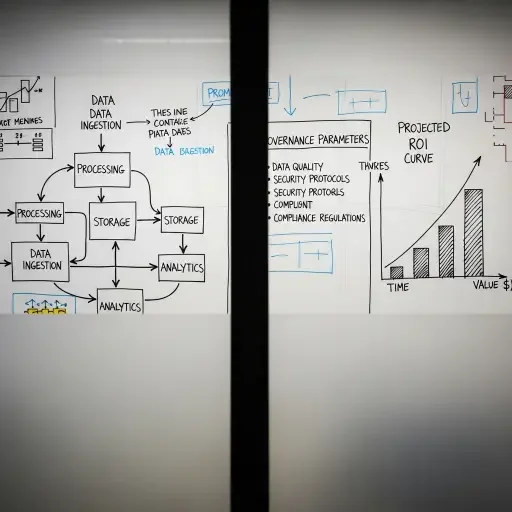 DATA
DATA
INGESTION
THES INE
CONTACLE
PIATA DAES
DATA BAESTION
MENKES
PROCESSING
PROCESSING
STORAGE
STORAGE
DATA
INGESTION
ANALYTICS
ANALYTICS
PROM
T
OVERNANCE PARAMETERS
• DATA QUALITY
• SECURITY PROTOCOLS
• SECURITY PROTORLS
• COMPLIGNT
• COMPLIANCE REGULATIONS
PROJECTED
ROI
CURVE
THVRES
TIME
VALUE $